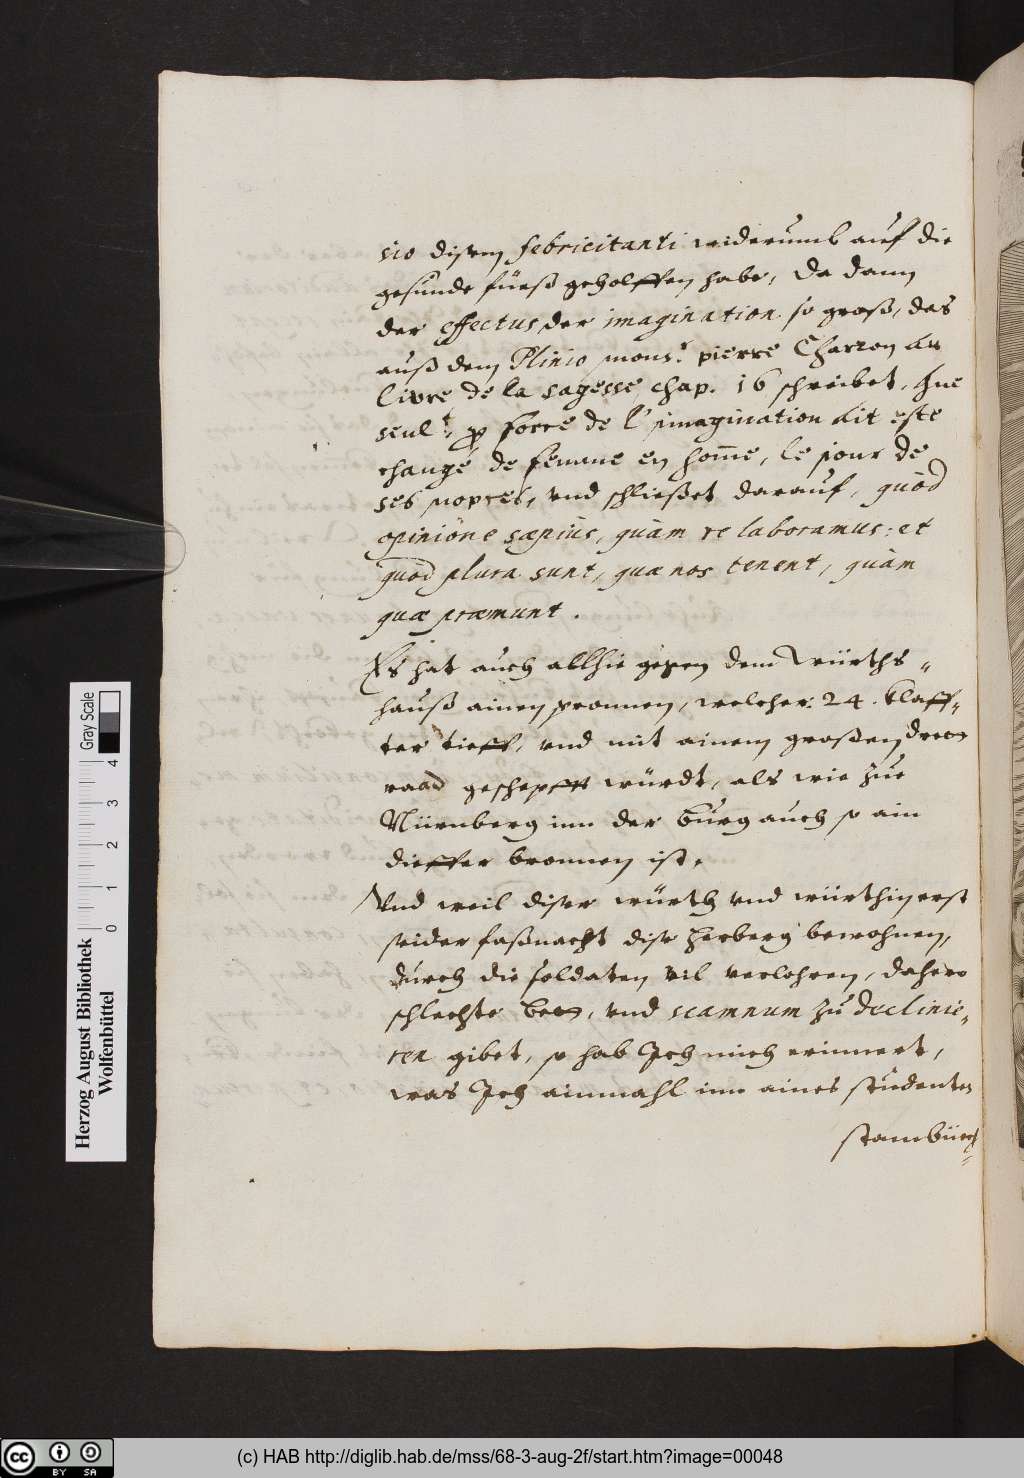 sio disem febricitanti widerumb auf die
gesunde füeß geholffen habe, da dann
der effectus der imagination so groß, das
auß dem Plinio mons.r pierre Charron au
livre de la sagesse chap. 16 schreibet, que
seul.t p force de l'imagination ait este
changé de femme en home, le jour de
ses nopces, vnd schließet darauf, quòd
opinione sæpius, quàm re laboramus: et
quòd plura sunt, quæ nos tenent, quàm
quæ præmunt.
Es hat auch allhie gegen dem Würths-
hauß ainen pronnen, welcher 24. klaff-
ter tieff, vnd mit ainem großen
raad geschepfft würdt, als wie zue
Nürnberg inn der burg auch so ain
dieffer bronnen ist,
Vnd weil diser würth vnd würthin erst
seider faßnacht dise herberg bewohnen,
durch die soldaten vil verlohren, dahero
schlechte bett, vnd scamnum zu declinie-
ren gibet, so hab Jch mich erinnert,
was Jch ainmahl inn aines studenten
stambuch
Herzog August Bibliothek
Wolfenbüttel
Gray Scale
0 1 2 3 4
(c) HAB http://diglib.hab.de/mss/68-3-aug-2f/start.htm?image=00048
cc BY SA